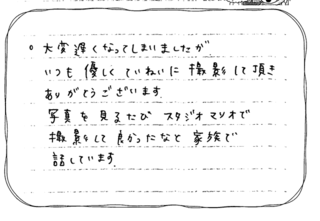 。大変遅くなってしまいましたが
いつも優しくていねいに撮影して頂き
ありがとうございます。
写真を見るたび スタジオマリオで
撮影して良かったなと家族で
話しています。